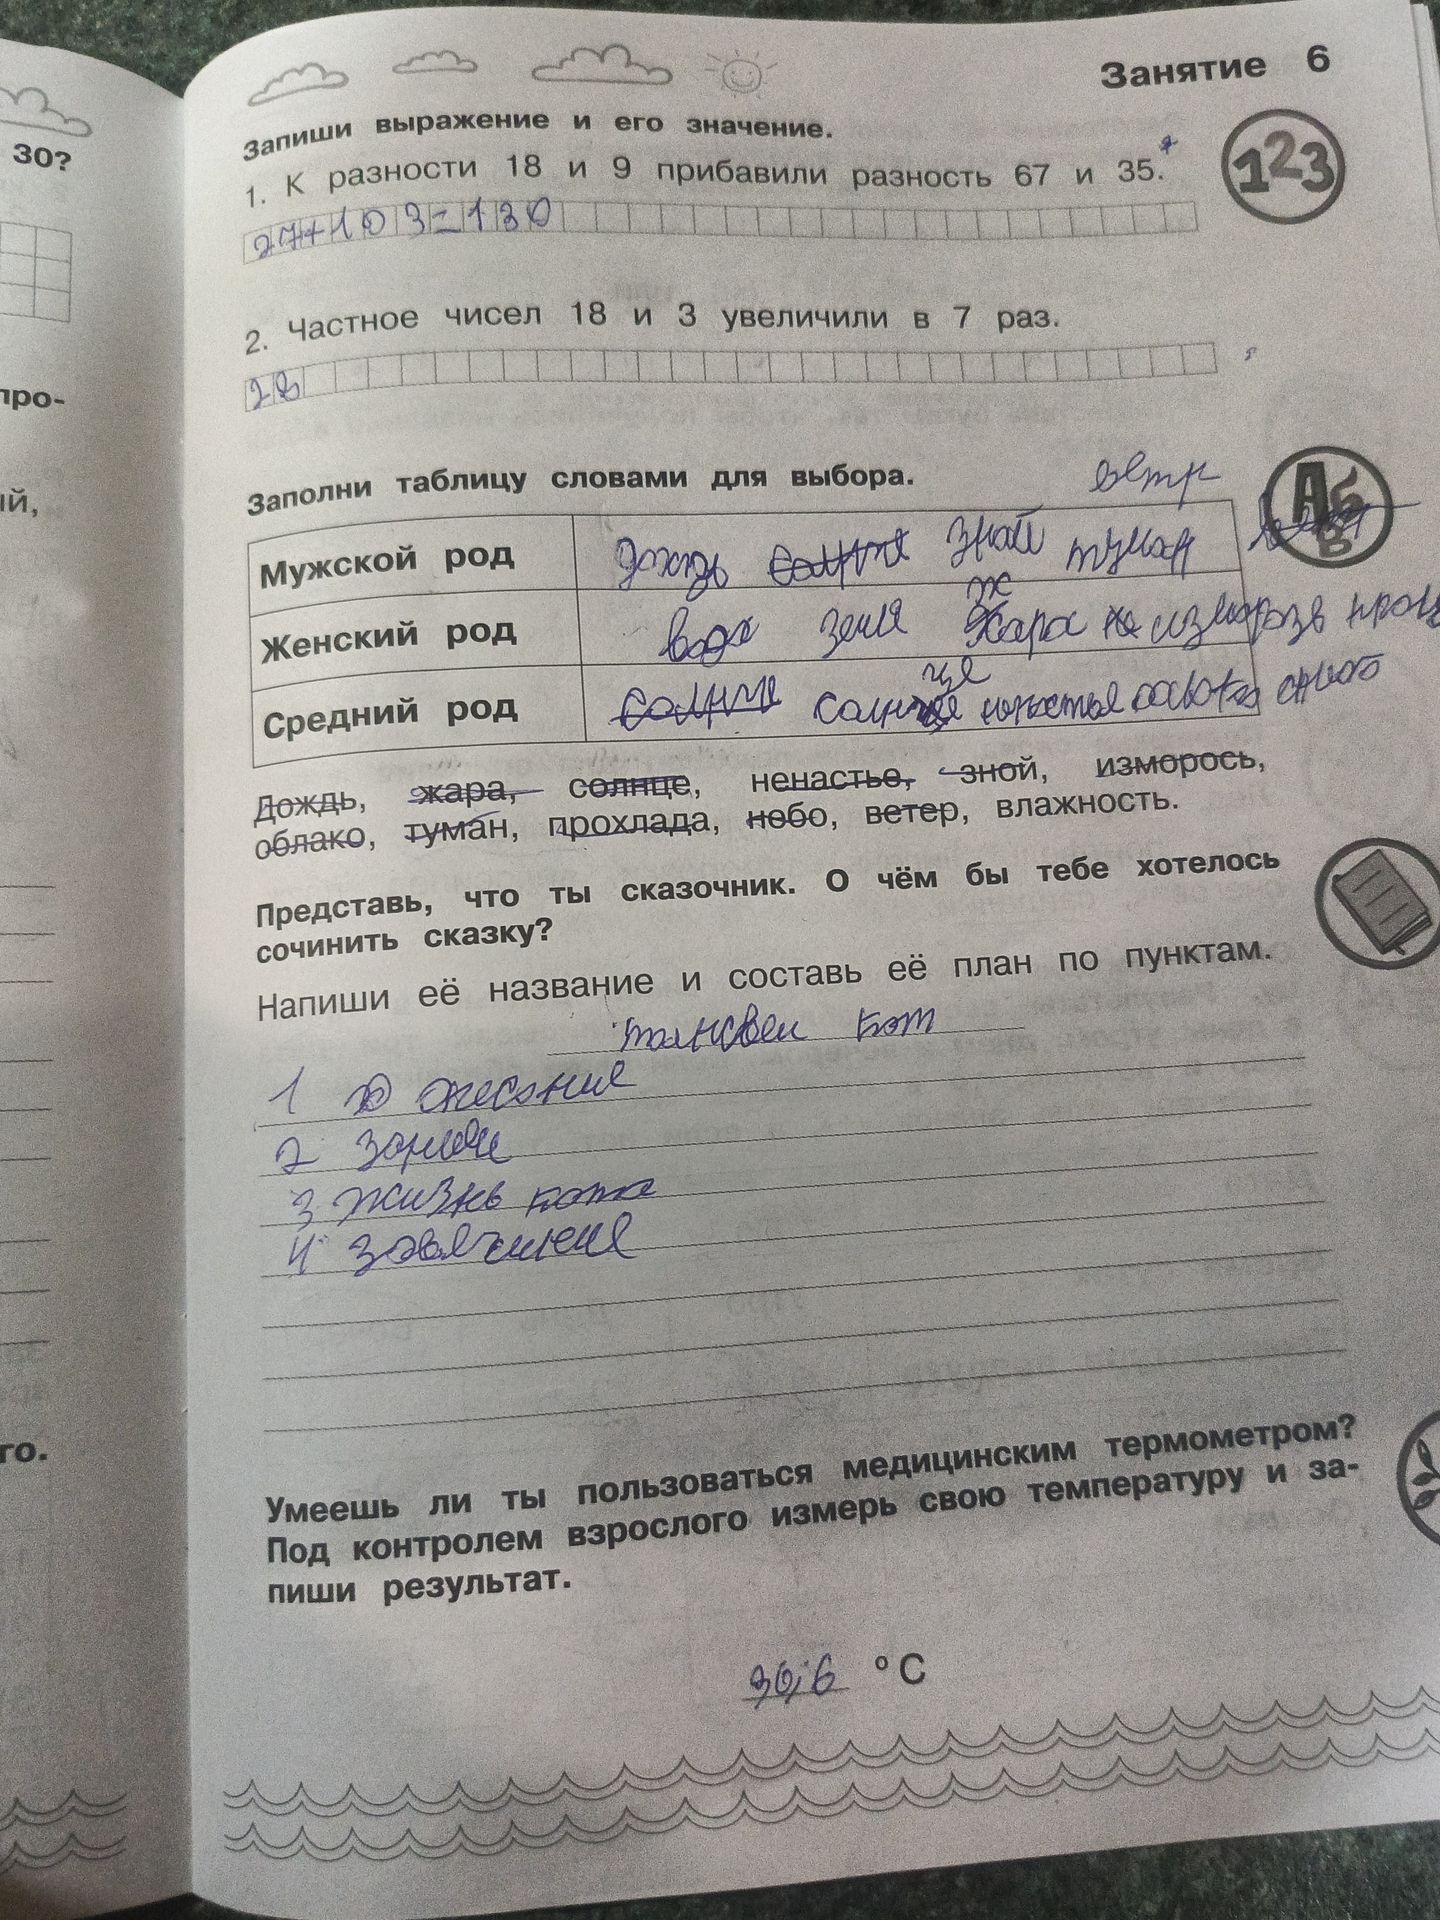 30?
про-
ый,
го.
Занятие 6
Запиши выражение и его значение.
123
1. К разности 18 и 9 прибавили разность 67 и 35.
27+103=130
2. Частное чисел 18 и 3 увеличили в 7 раз.
28
Заполни таблицу словами для выбора.
ветр
АБВ
Мужской род дождь зной туман
Женский род вода земля жара изморозь прох
Средний род солнце
Дождь, жара, солнце, ненастье, зной, изморось,
облако, туман, прохлада, небо, ветер, влажность.
Представь, что ты сказочник. О чём бы тебе хотелось
сочинить сказку?
Напиши её название и составь её план по пунктам.
кот
1
2
3 жизнь кота
4
Умеешь ли ты пользоваться медицинским термометром?
Под контролем взрослого измерь свою температуру и за-
пиши результат.
36,6 °С